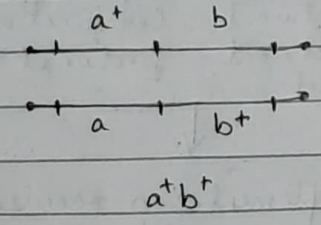 a⁺ b
a b⁺
a⁺b⁺